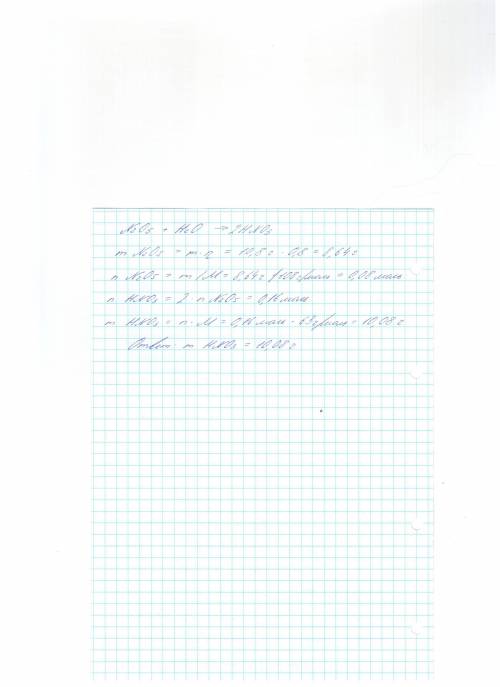 N2O5 + H2O → 2HNO3
m N2O5 = m·η = 10,8 г · 0,8 = 8,64 г
n N2O5 = m/M = 8,64 г / 108 г/моль = 0,08 моль
n HNO3 = 2 · n N2O5 = 0,16 моль
m HNO3 = n · M = 0,16 моль · 63 г/моль = 10,08 г
Ответ: m HNO3 = 10,08 г